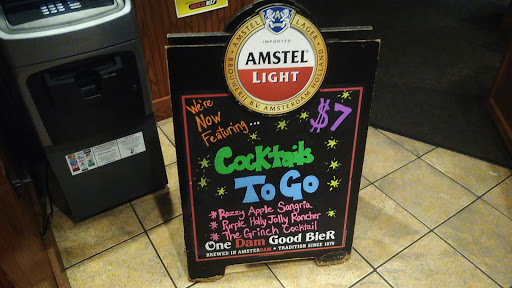 AMSTEL LAGER
IMPORTED
AMSTEL
LIGHT
BROUWERIJ B.V. AMSTERDAM HOLLAND
$7
We're
Now
Featuring...
Cocktails
To Go
* Razzy Apple Sangria
* Purple Holly Jolly Rancher
* The Grinch Cocktail
One Dam Good BieR
BREWED IN AMSTERDAM • TRADITION SINCE 1870